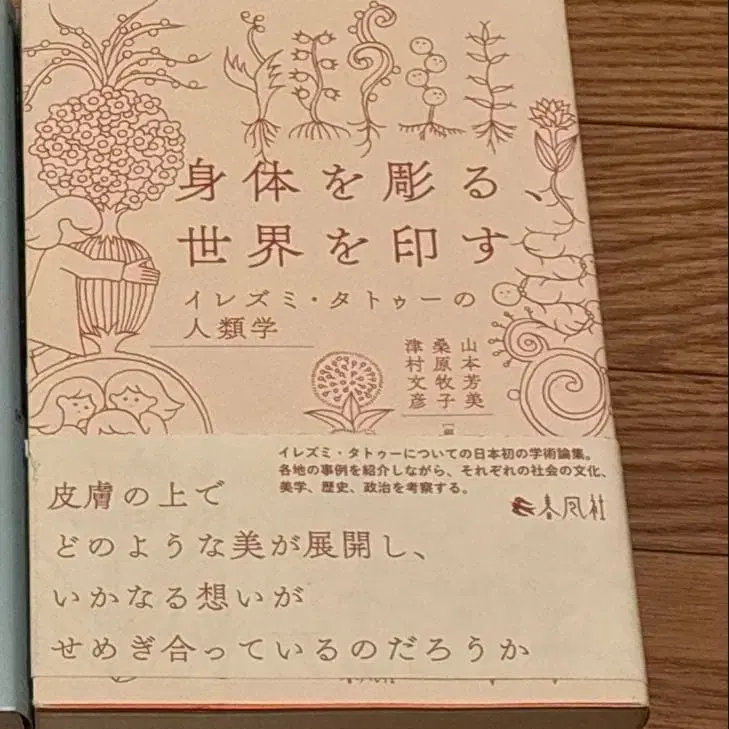 身体を彫る、
世界を印す
イレズミ・タトゥーの
人類学
山本芳美
桑原牧子
津村文彦
イレズミ・タトゥーについての日本初の学術論集。
各地の事例を紹介しながら、それぞれの社会の文化、
美学、歴史、政治を考察する。
春風社
皮膚の上で
どのような美が展開し、
いかなる想いが
せめぎ合っているのだろうか